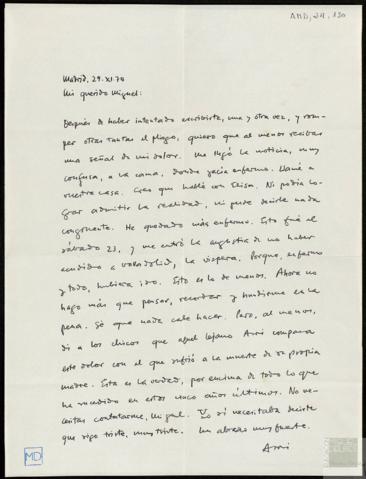 AMD, 24, 130
Madrid, 29.XI.74
Mi querido Miguel:
Después de haber intentado escribirte, una y otra vez, y rom-
per otras tantas el pliego, quiero que al menos recibas
una señal de mi dolor. Me llegó la noticia, muy
confusa, a la cama, donde yacía enfermo. Llamé a
vuestra casa. Creo que hablé con
No podía lo-
grar admitir la realidad, ni pude decirle nada
congruente. He quedado más enfermo. Esto fué el
sábado 23, y me entró la angustia de no haber
acudido a Valladolid, la víspera. Porque, enfermo
y todo, hubiera ido. Esto es lo de menos. Ahora no
hago más que pensar, recordar y hundirme en la
pena. Sé que nada cabe hacer. Pero, al menos,
di a los chicos que aquel lejano Arri compara
este dolor con el que sufrió a la muerte de su propia
madre. Esta es la verdad, por encima de todo lo que
ha sucedido en estos cinco años últimos. No ne-
cesitas contestarme, Miguel. Yo sí necesitaba decirte
que sigo triste, muy triste. Un abrazo muy fuerte.
Arri
MD